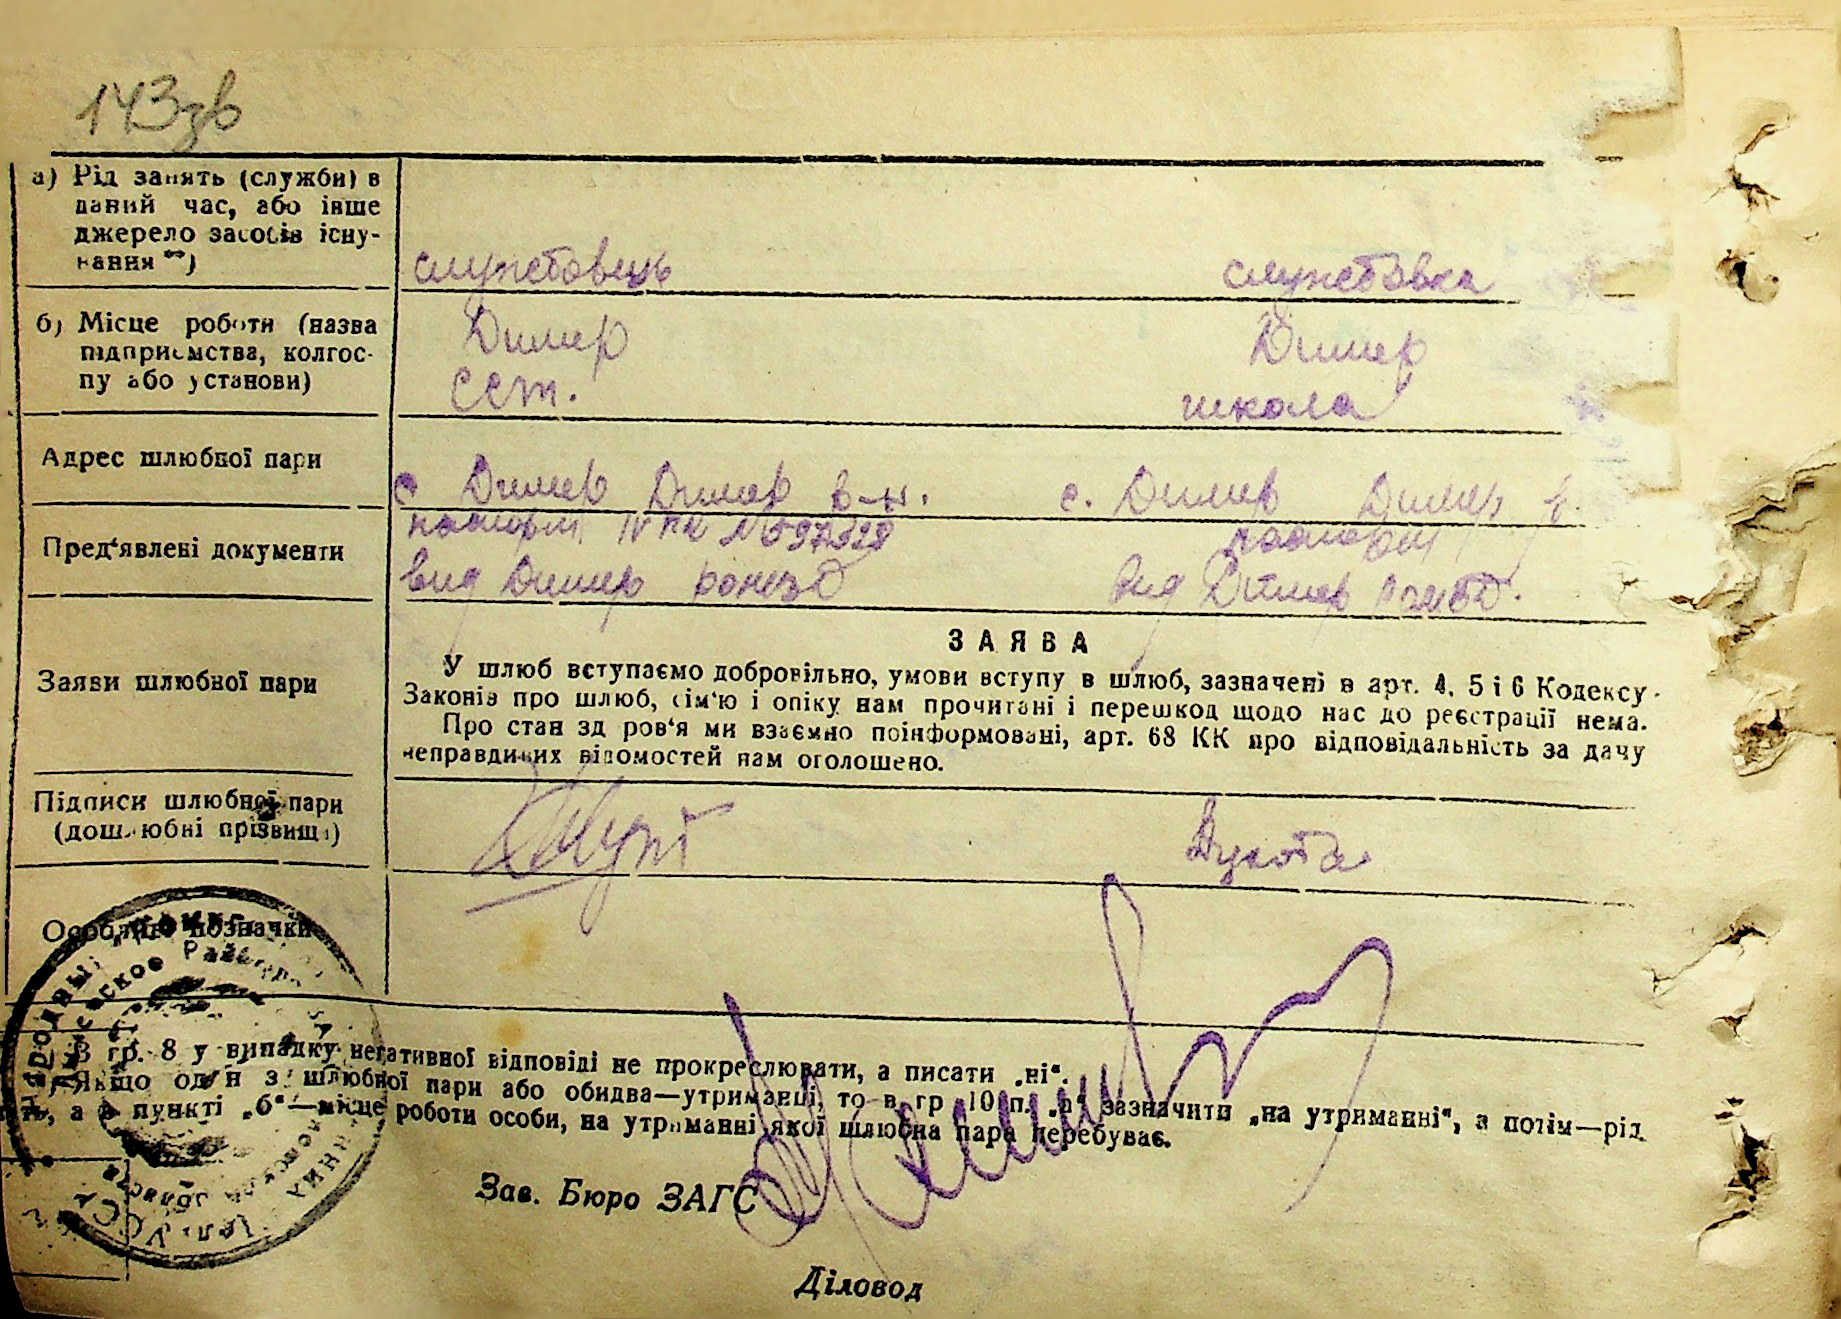 143зв
а) Рід занять (служби) в
даний час, або інше
джерело засобів існу-
вання **)
службовець службовка
б) Місце роботи (назва
підприємства, колгос-
пу або установи)
Димер Димер
школа
Адрес шлюбної пари
с Димер Димер р-н. с. Димер Димер
Пред'явлені документи
паспорт IV ПК № 597328 паспорт
вид Димер вид Димер
Заяви шлюбної пари
ЗАЯВА
У шлюб вступаємо добровільно, умови вступу в шлюб, зазначені в арт. 4, 5 і 6 Кодексу
Законів про шлюб, сім'ю і опіку нам прочитані і перешкод щодо нас до реєстрації нема.
Про стан здоров'я ми взаємно поінформовані, арт. 68 КК про відповідальність за дачу
неправдивих відомостей нам оголошено.
Підписи шлюбної пари
(дошлюбні прізвища)
Особливі позначки
В гр. 8 у випадку негативної відповіді не прокреслювати, а писати „ні“.
Якщо один з шлюбної пари або обидва—утриманці, то в гр 10 п. „а“ зазначити „на утриманні“, а потім—рід
а в пункті „б“—місце роботи особи, на утриманні якої шлюбна пара перебуває.
Зав. Бюро ЗАГС
Діловод